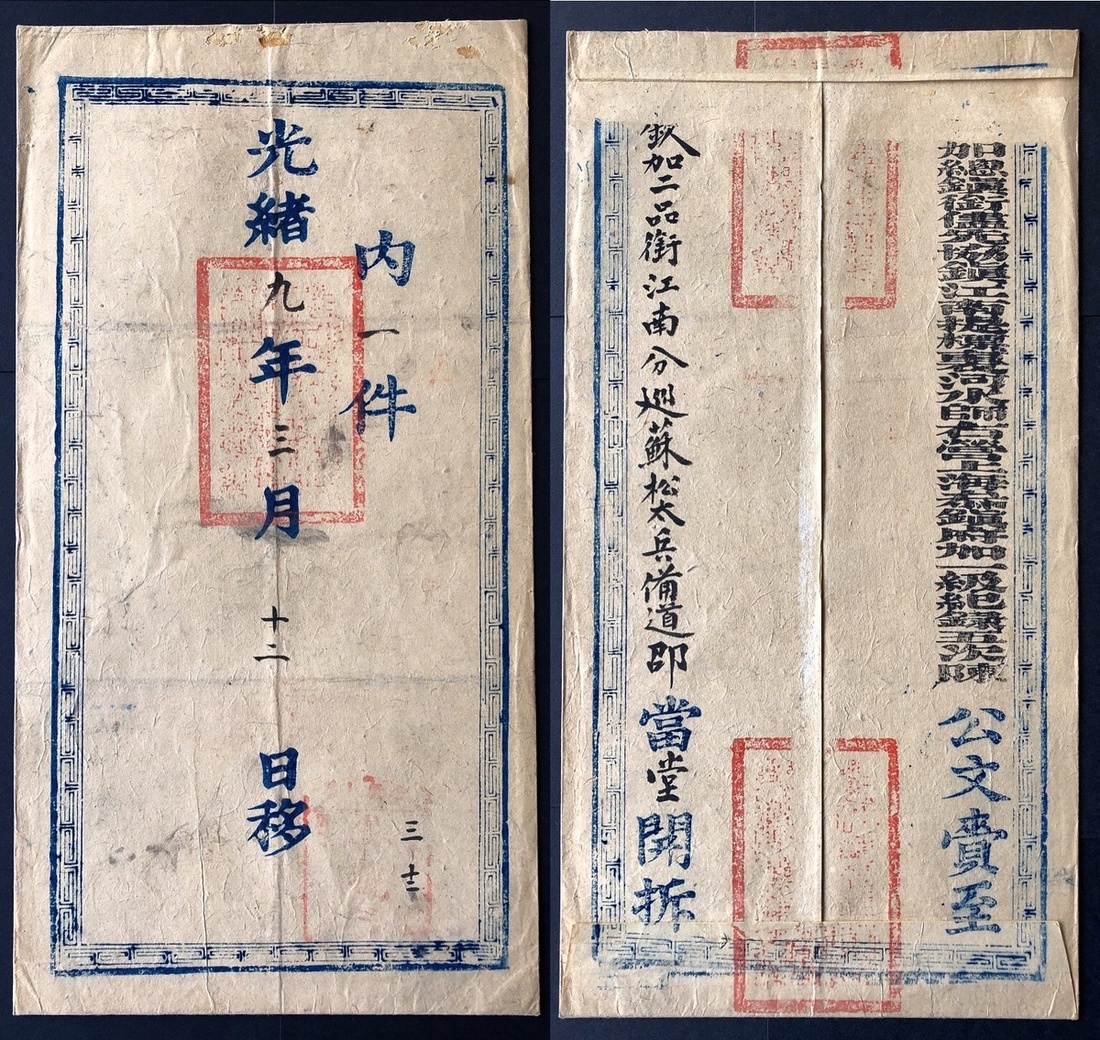 內一件
光緒九年三月十二日移
三 十三
加總鎮銜儘先協鎮江南提標裏河水師右營上海叅鎮府加一級紀錄五次陳 公文賫至
欽加二品銜江南分巡蘇松太兵備道邵 當堂開拆